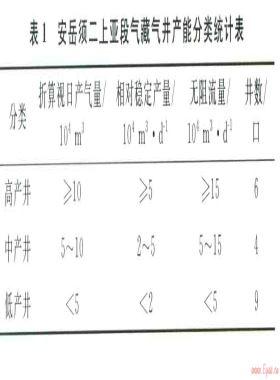 表1 安岳须二上亚段气藏气井产能分类统计表
分类 折算视日产气量/10⁴ m³ 相对稳定产量/10⁴ m³·d⁻¹ 无阻流量/10⁴ m³·d⁻¹ 井数/口
高产井 ≥10 ≥5 ≥15 6
中产井 5~10 2~5 5~15 4
低产井 <5 <2 <5 9